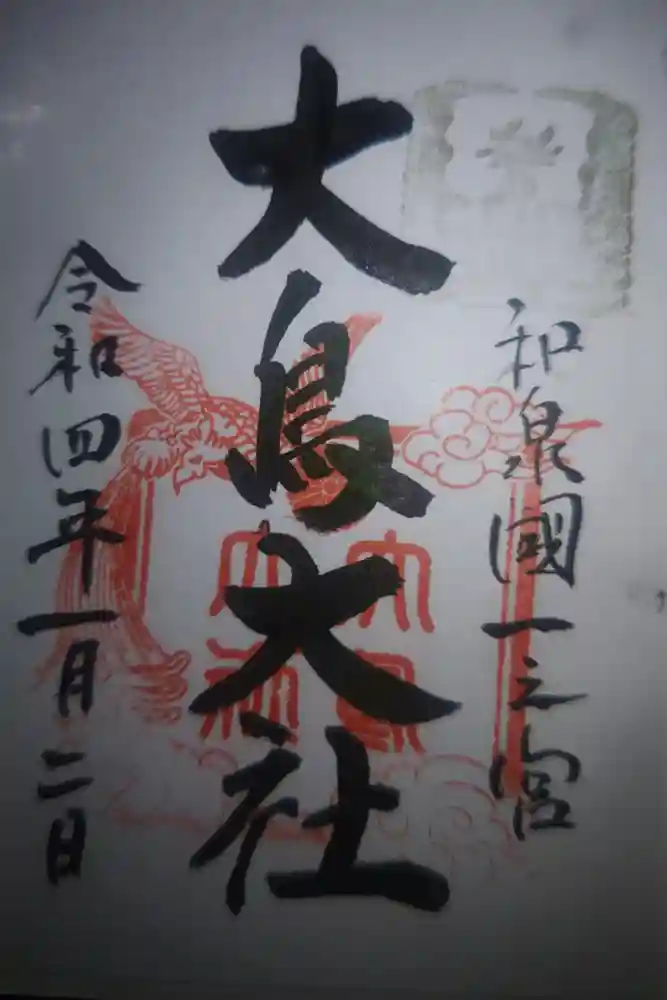 和泉國一之宮
大鳥大社
大鳥
大社
令和四年一月二日